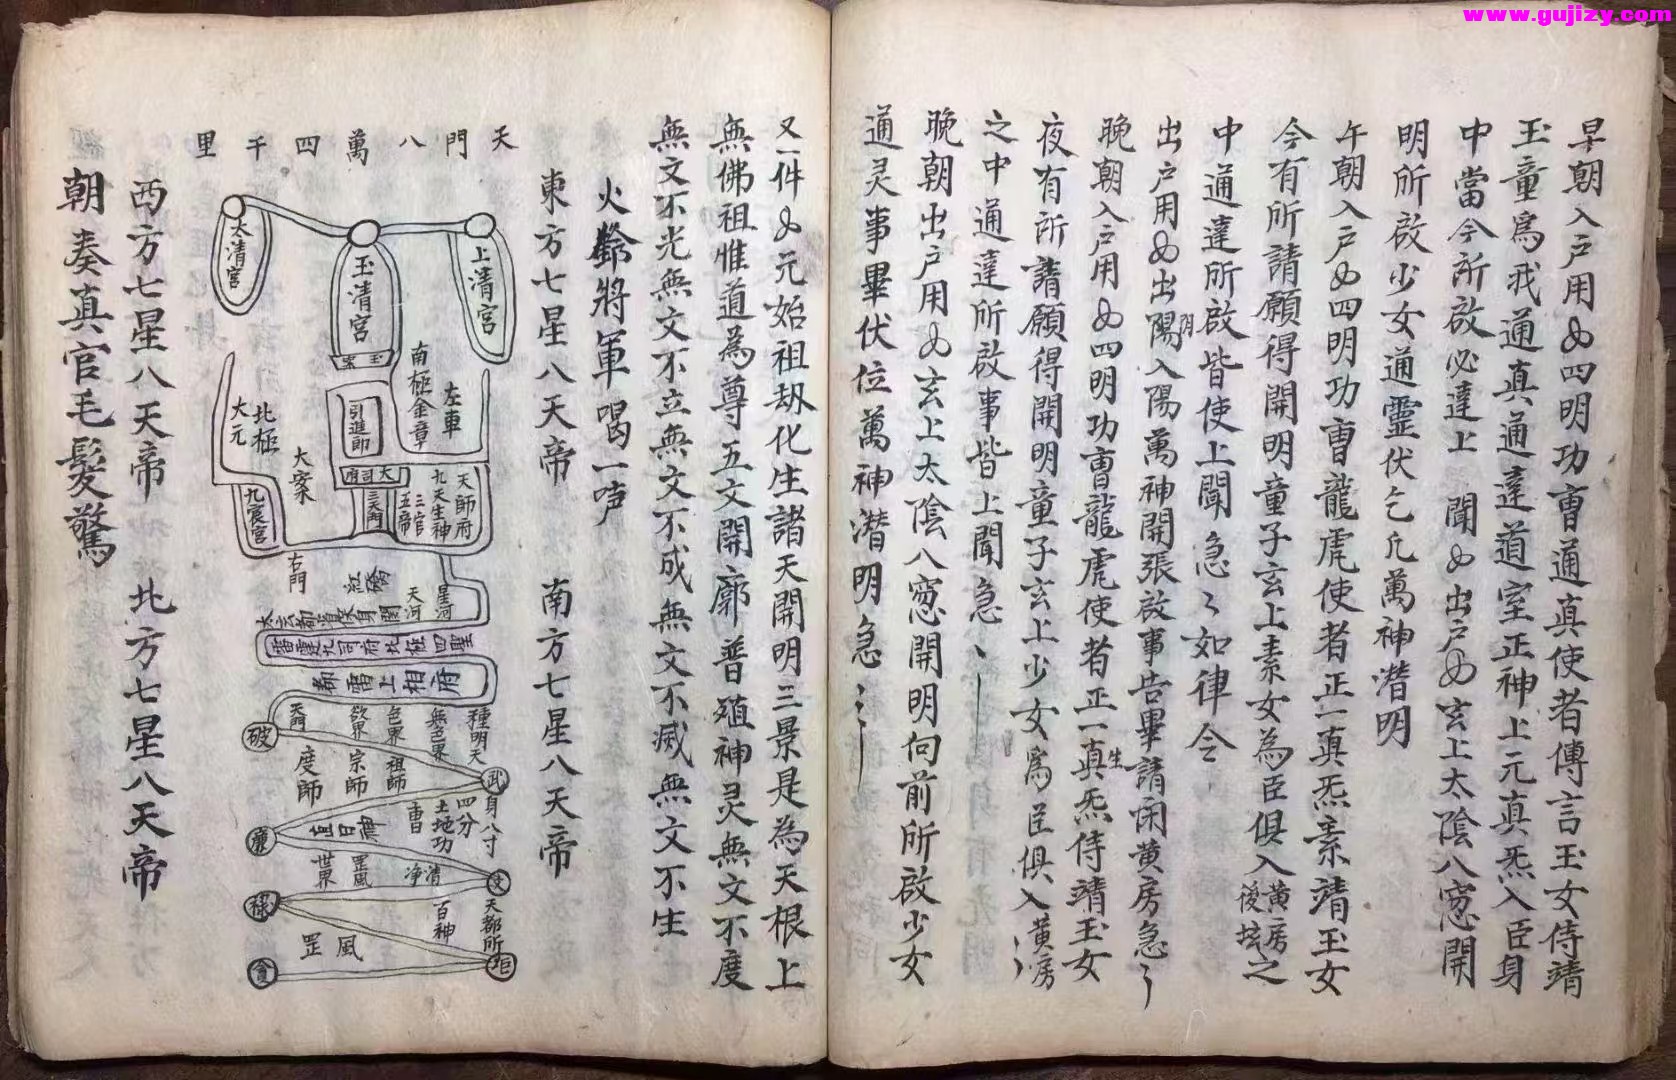 www.gujizy.com
早朝入戶用め四明功曹通真使者傳言玉女侍靖
玉童爲我通真通達道室正神上元真炁入臣身
中當今所啟必達上聞め出戶め玄上太陰八窓開
明所啟少女通靈伏乞凢萬神潜明
午朝入戶め四明功曹龍虎使者正一真炁素靖玉女
今有所請願得開明童子玄上素女為臣俱入黄房後堂之
中通達所啟皆使上聞急〻如律令
出戶用め出陽入陽萬神開張啟事告畢請閉黄房急〻
晚朝入戶用め四明功曹龍虎使者正一真生炁侍靖玉女
夜有所請願得開明童子玄上少女爲臣俱入黄房
之中通達所啟事皆上聞急〻
晚朝出戶用め玄上太陰八窓開明向前所啟少女
通灵事畢伏位萬神潜明急〻
又一件め元始祖劫化生諸天開明三景是為天根上
無佛祖惟道為尊五文開廓普殖神灵無文不度
無文不光無文不立無文不成無文不滅無文不生
火齡將軍喝一声
東方七星八天帝 南方七星八天帝
天門八萬四千里
上清宮
玉清宮
太清宮
玉京
南極金章
左車
引進師
北極
大元
大寀
九宸宮
天司府
三天門
天師府
九天生神
三官
五帝
右門
星河
天河
四聖北極府司九霆雷
府相上雷都
種明天
無色界
色界
欲界
天門
祖師
宗師
度師
破
武
身八寸
四分
土地功
曹
廉
罡風
世界
清净
文
天都所
百神
禄
風
罡
巨
貪
西方七星八天帝 北方七星八天帝
朝奏真官毛髮驚